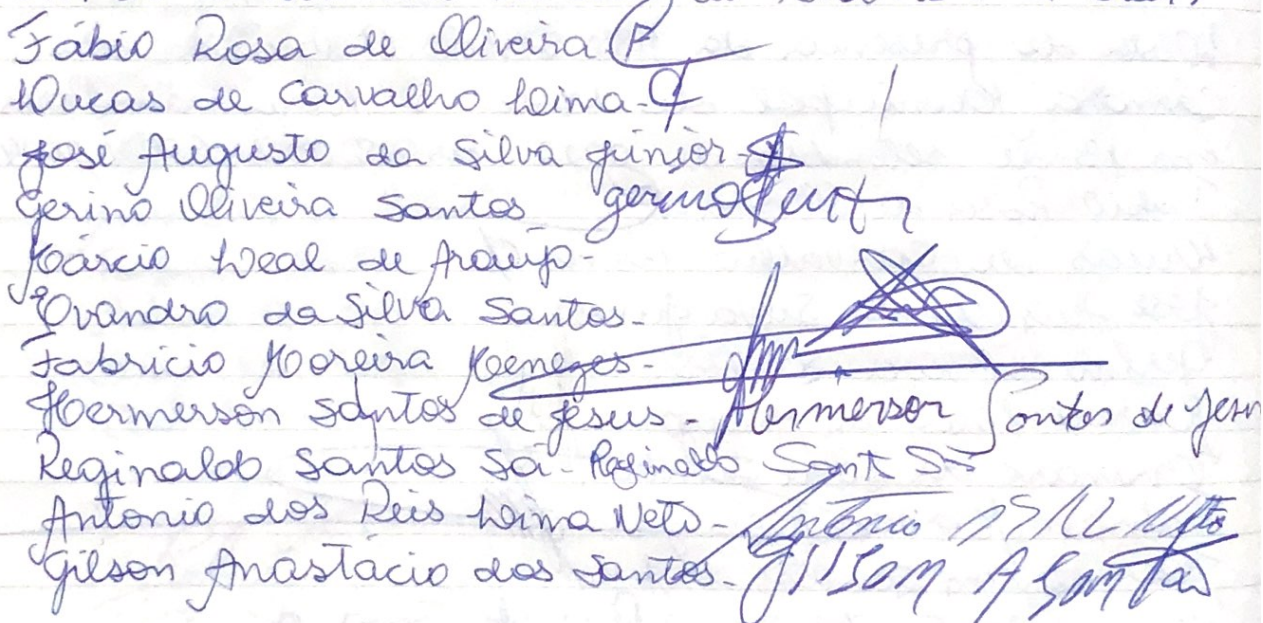 Fábio Rosa de Oliveira
Lucas de Carvalho Lima-
José Augusto da Silva Júnior-
Gerino Oliveira Santos
Márcio Leal de Araújo-
Evandro da Silva Santos-
Fabrício Moreira Menezes-
Hermerson Santos de Jesus- Hermerson Santos de Jesu
Reginaldo Santos Sá- Reginaldo Sant Sá
Antonio dos Reis Lima Neto- Antonio Neto
Gilson Anastácio dos Santos- Gilson A Santos